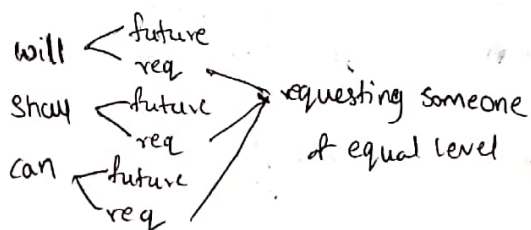 will
future
req
Shall
future
req
can
future
req
requesting someone
of equal level